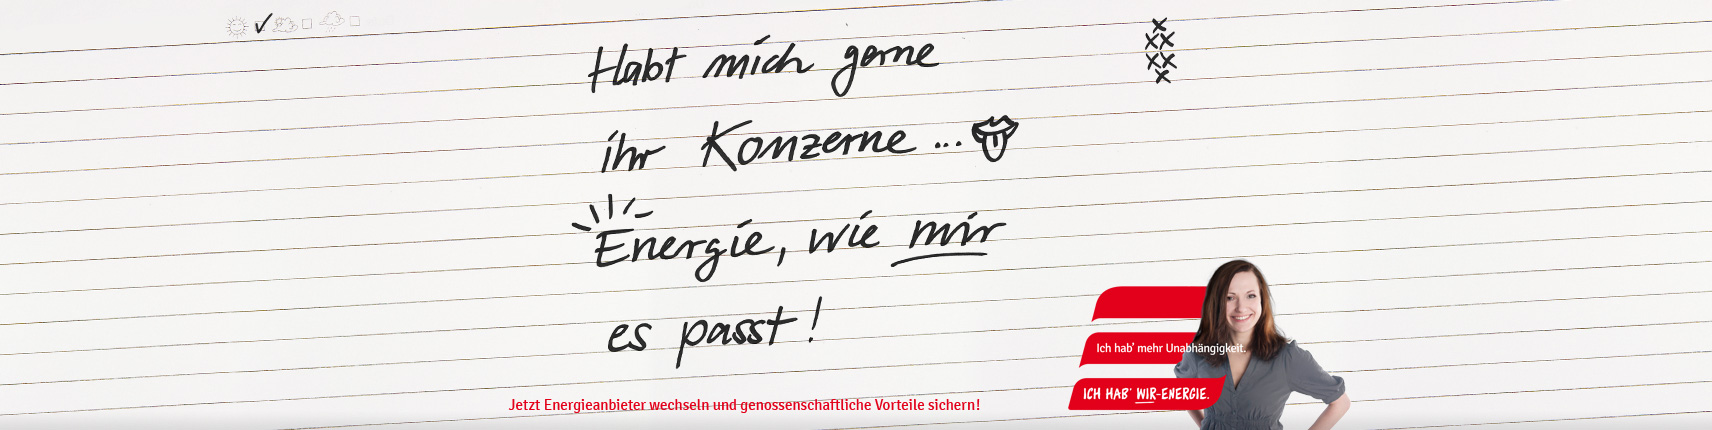 Habt mich gerne
ihr Konzerne...
Energie, wie mir
es passt!
Ich hab' mehr Unabhängigkeit.
ICH HAB' WIR-ENERGIE.
Jetzt Energieanbieter wechseln und genossenschaftliche Vorteile sichern!